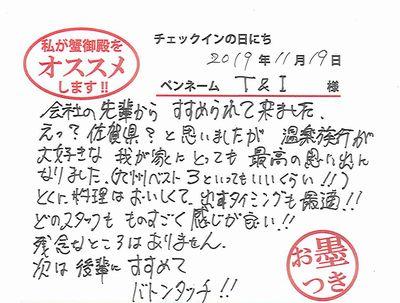 私が蟹御殿を
オススメ
します!!
チェックインの日にち
2019年11月19日
ペンネーム T&I 様
会社の先輩から すすめられて来ました。
えっ?佐賀県?と思いましたが 温泉旅行が
大好きな 我が家にとっても 最高の思い出に
なりました。(九州ベスト3といってもいいくらい!!)
とくに料理はおいしくて、出すタイミングも最適!!
どのスタッフも ものすごく 感じが良い!!
残念なところはありません。
次は 後輩に すすめて
バトンタッチ!!
お墨
つき